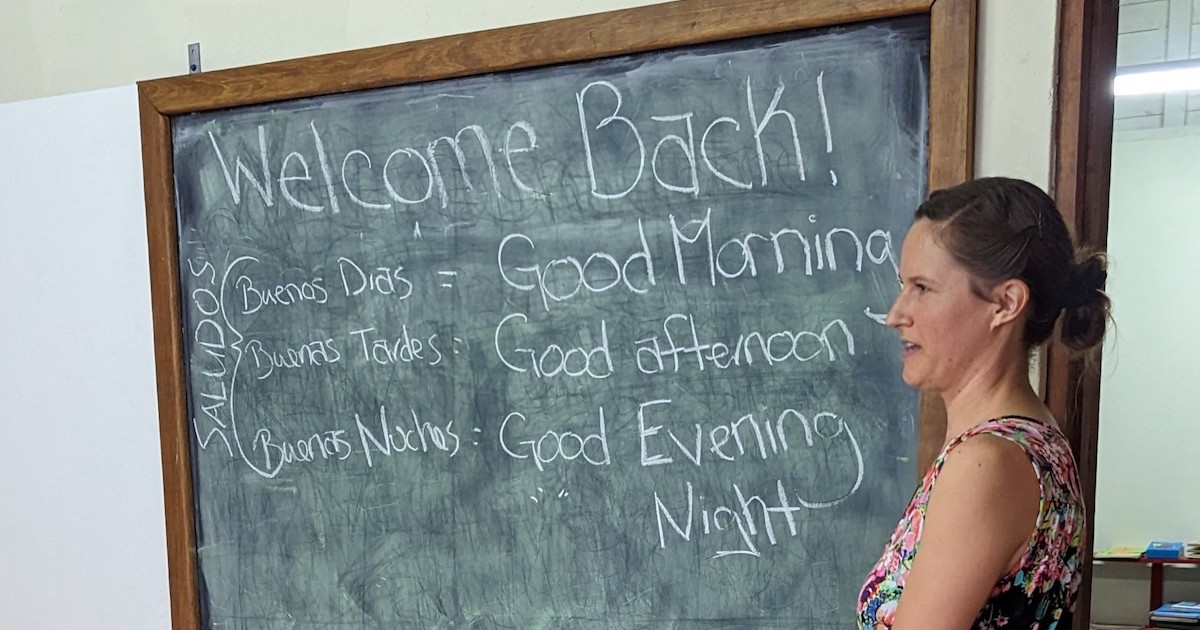 Welcome Back!
SALUDOS
Buenos Dias = Good Morning
Buenas Tardes: Good afternoon
Buenas Noches: Good Evening
" " Night